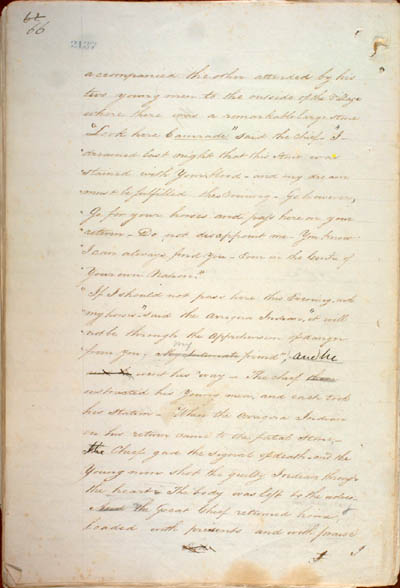 62
66
2137
accompanied the other attended by his
two young men to the outside of the Village
where there was a remarkable large stone
"Look here Camrade" said the Chief, "I
dreamed last night that this Stone was
stained with Your blood – and my dream
must be fulfilled this Evening – Go however,
Go for your horses and pass here on your
return – Do not disappoint me – You know
I can always find you – Even in the Centre of
Your own Nation."
"If I should not pass here this Evening with
my horses" said the Indian, "it will
not be through the Apprehension of danger
from you, my friend", and he
went his way – The Chief
instructed his Young men, and each took
his station – When the Indian
on his return came to the fatal Stone, –
the Chief, gave the signal of death and the
Young men shot the guilty Indian through
the heart – The body was left to the wolves
The Great Chief returned home
loaded with presents and with praise